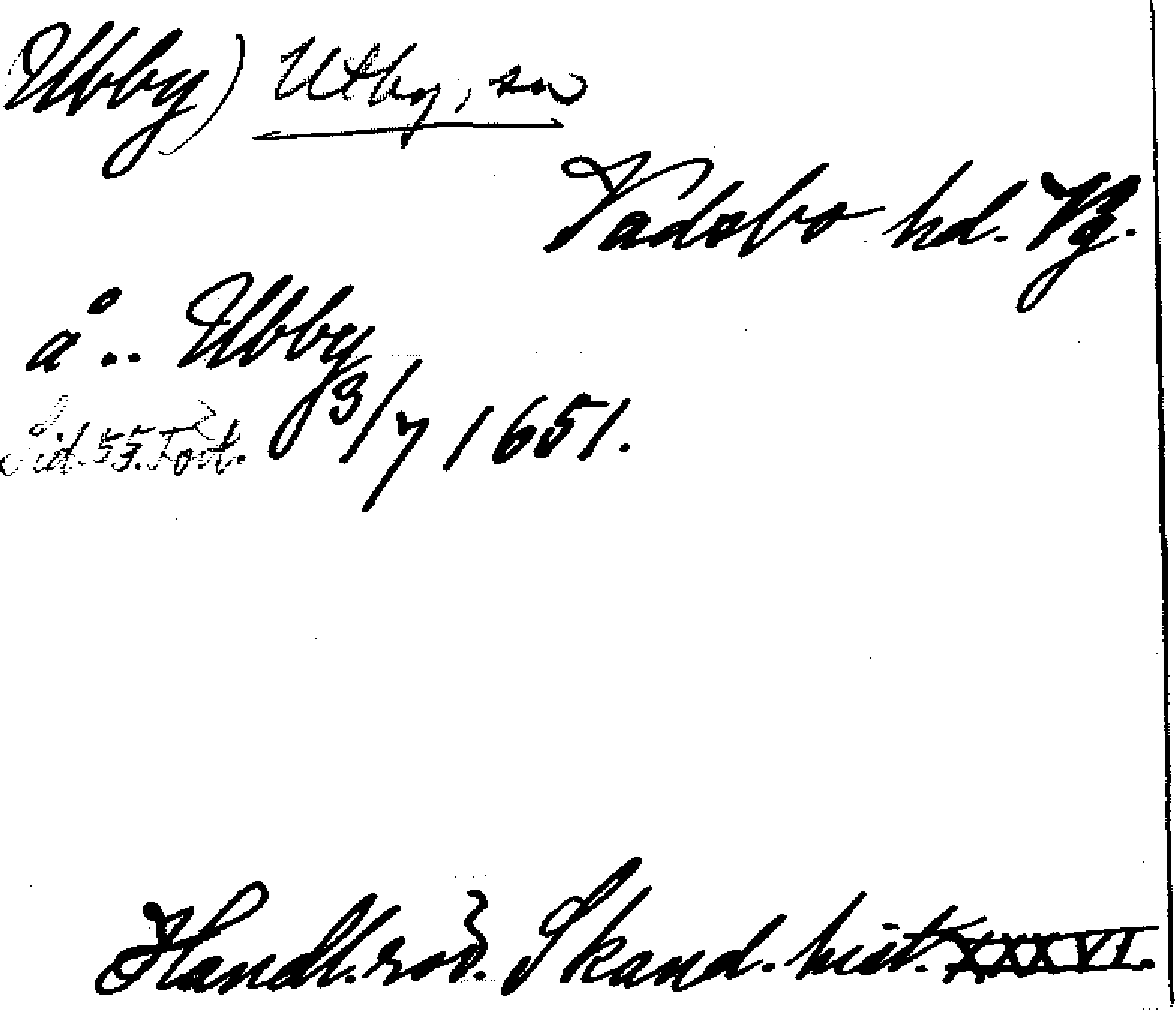 Ubby) Utby, sn
Vadsbo hd. Vg.
å.. Ubby
Sid. 55. Fot. 3/7 1651.
Handl. rör. Skand. hist. XXXVI.